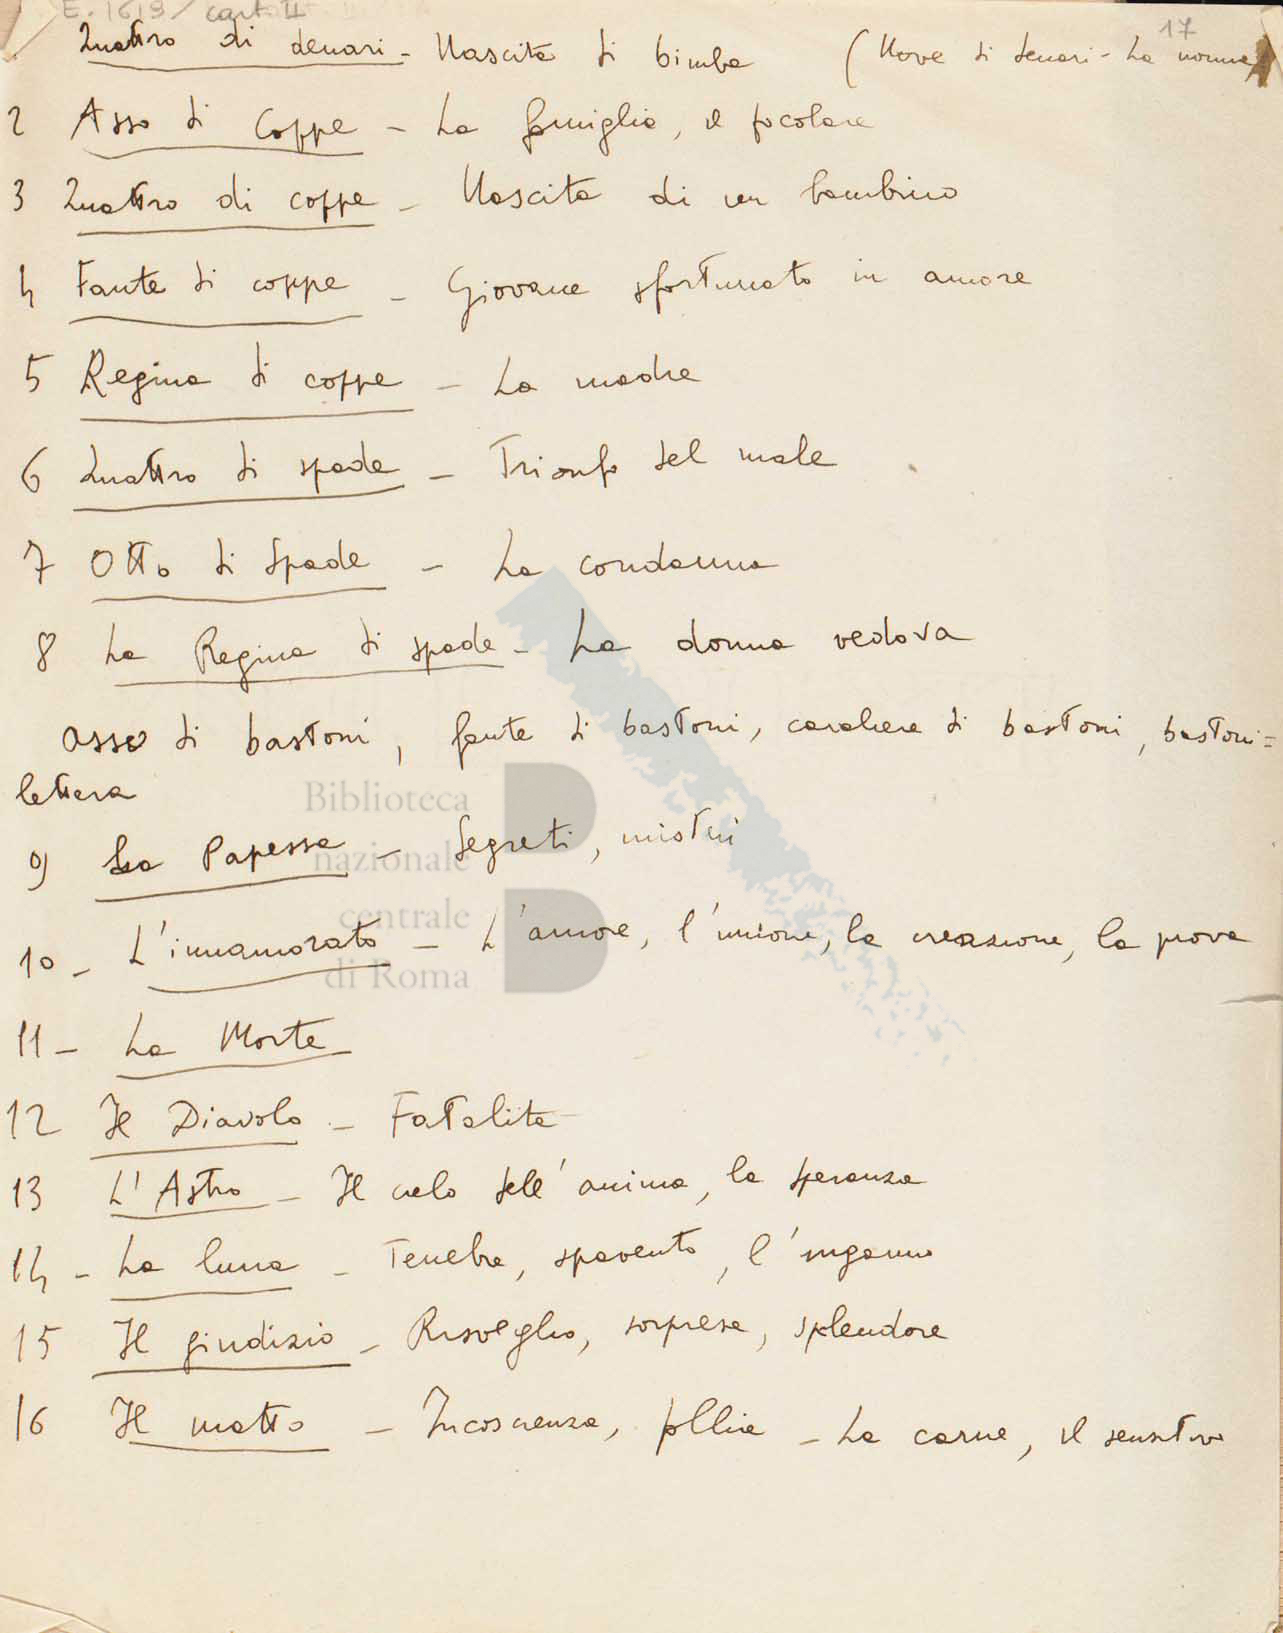 E. 1619 / cart. II
17
Quattro di denari - Nascita di bimba (Nove di denari - La nonna)
2 Asso di Coppe - La famiglia, il focolare
3 Quattro di coppe - Nascita di un bambino
4 Fante di coppe - Giovane sfortunato in amore
5 Regina di coppe - La madre
6 Quattro di spade - Trionfo del male
7 Otto di Spade - La condanna
8 La Regina di spade - La donna vedova
Asso di bastoni, fante di bastoni, cavaliere di bastoni, bastoni=
lettera
9) La Papessa - Segreti, misteri
10 - L'innamorato - L'amore, l'unione, la creazione, la prova
11 - La Morte
12 Il Diavolo - Fatalità
13 L'Astro - Il cielo dell'anima, la speranza
14 - La luna - Tenebre, spavento, l'inganno
15 Il giudizio - Risveglio, sorprese, splendore
16 Il matto - Incoscienza, follie - La carne, il sensitivo
Biblioteca
nazionale
centrale
di Roma